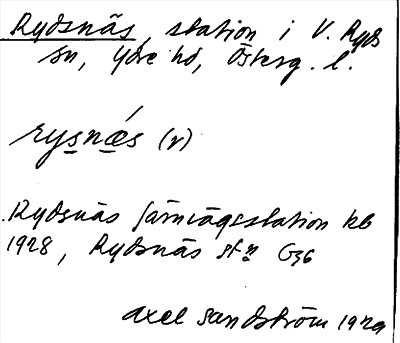 Rydsnäs, station i V. Ryds
sn, Ydre hd, Österg. l.
rysnǽs (r)
Rydsnäs järnvägsstation kb
1928, Rydsnäs stn G36
Axel Sandström 1929